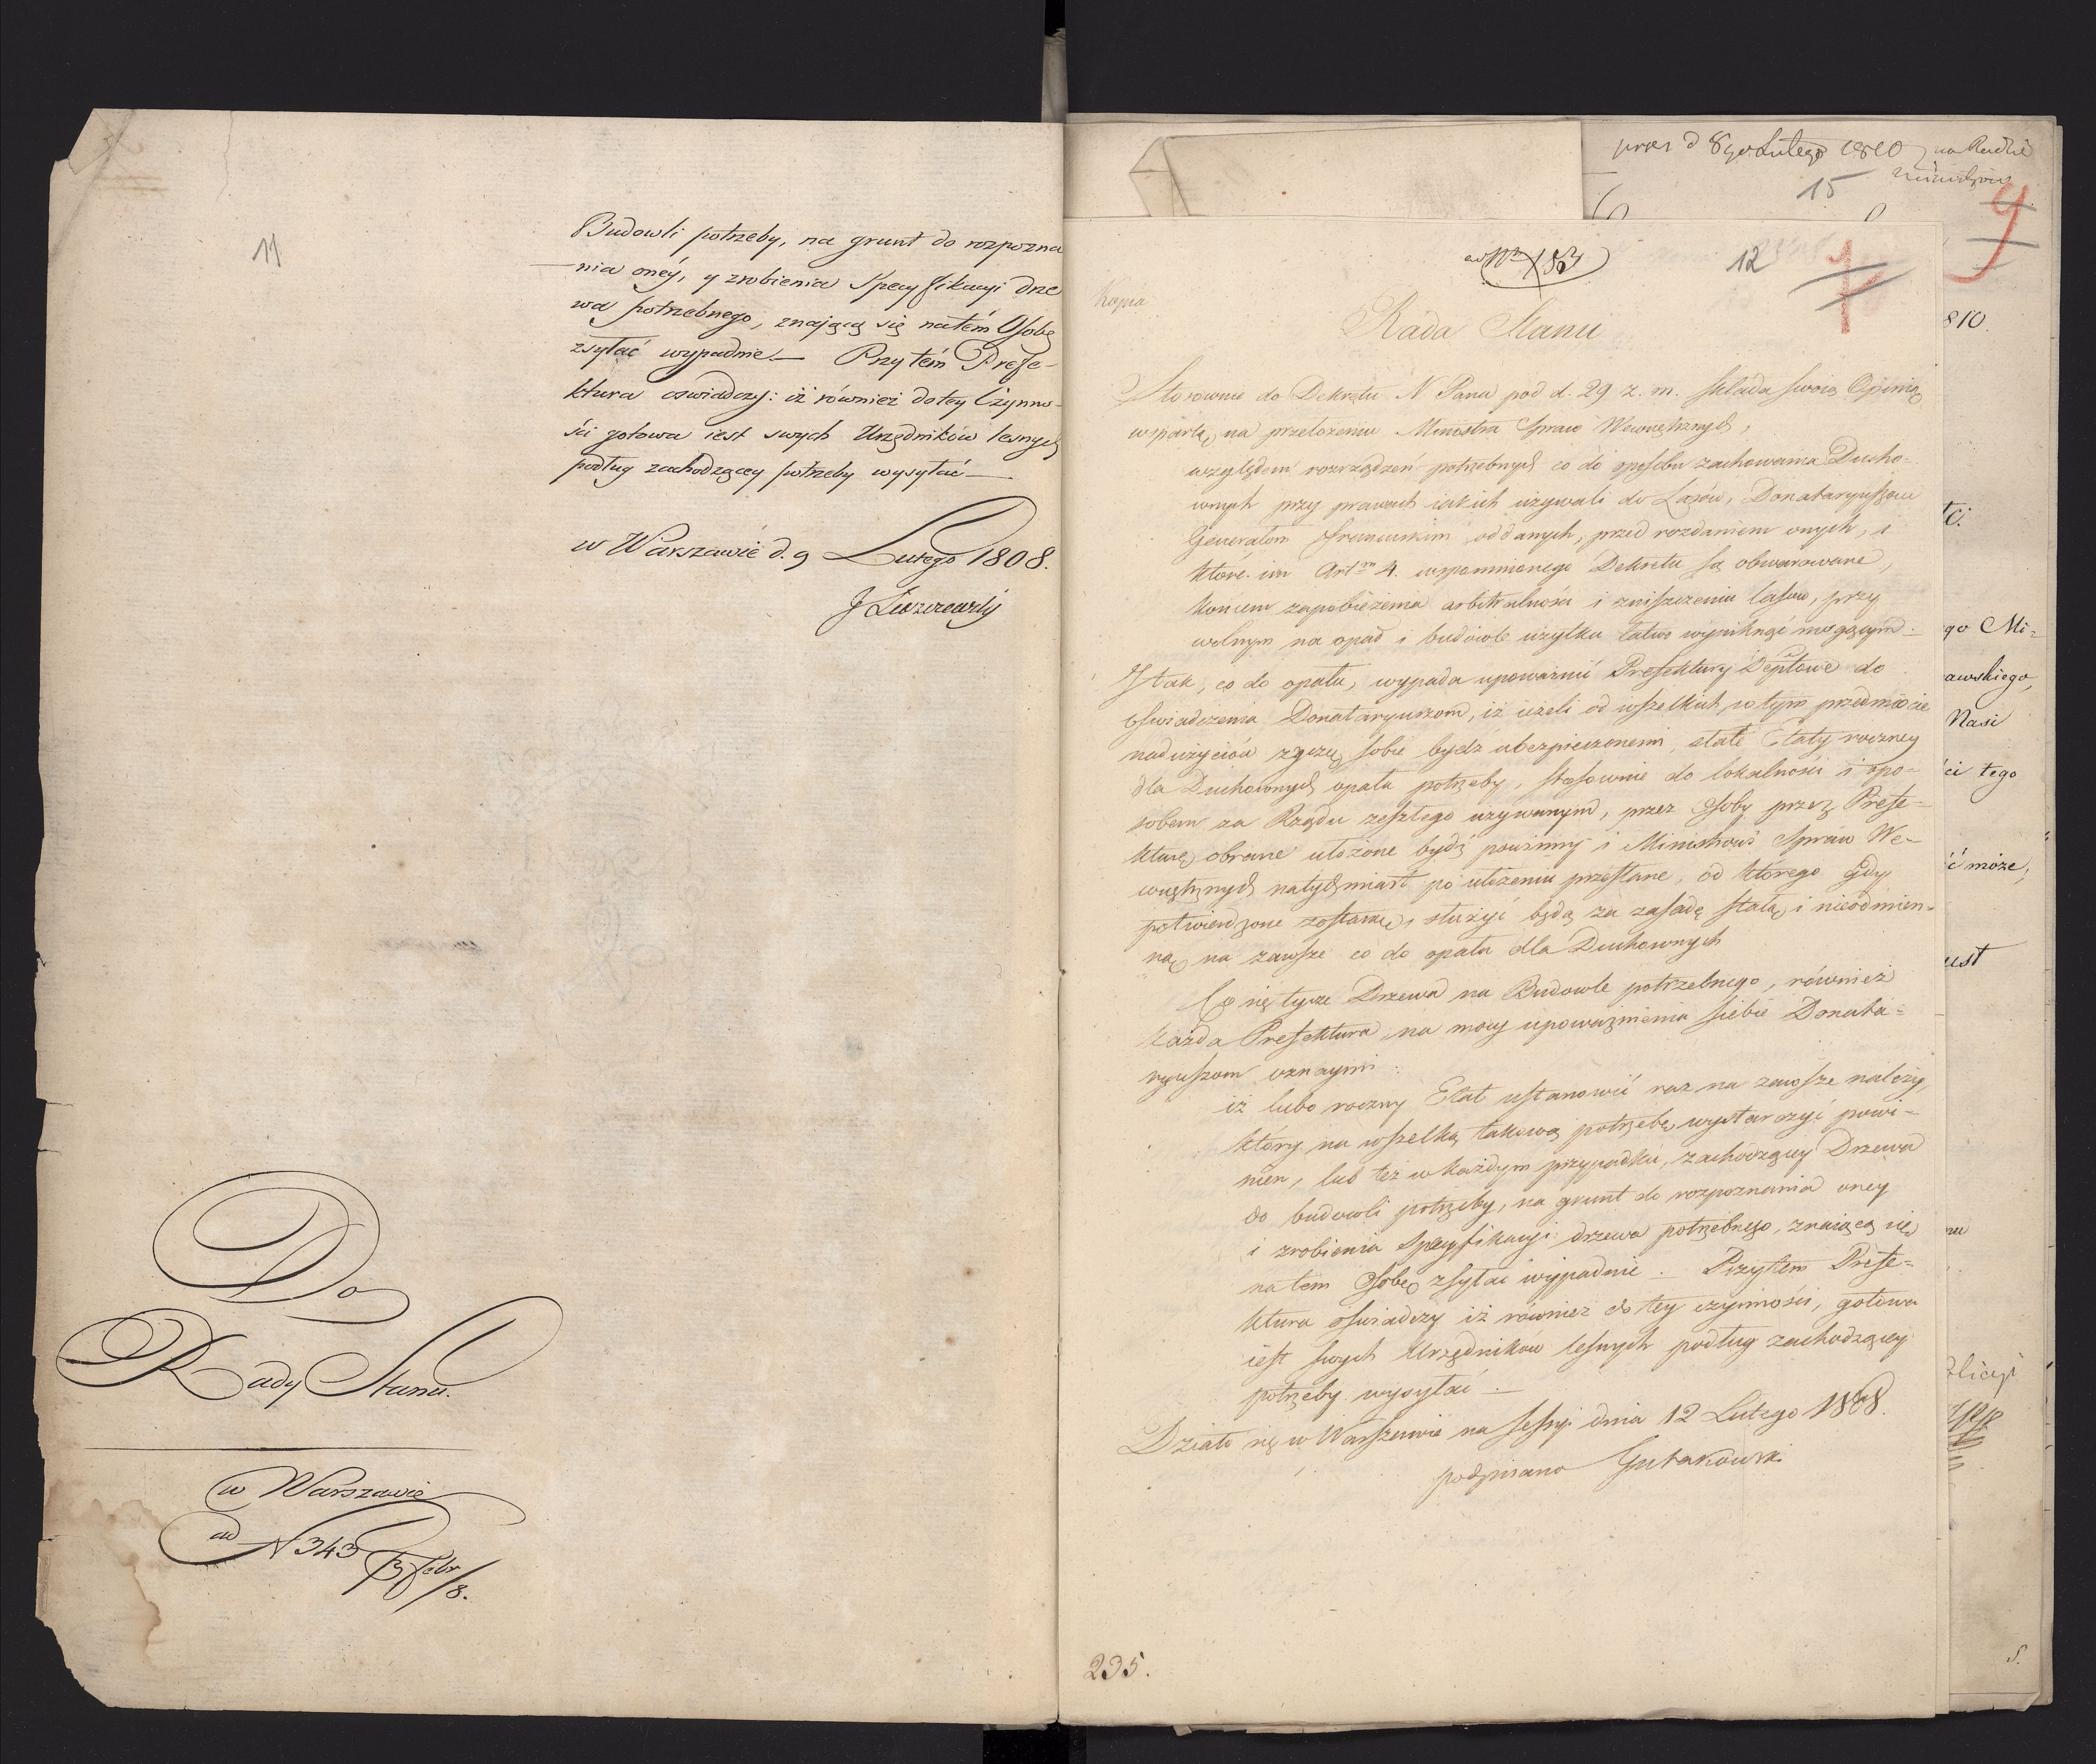 11
Budowli potrzeby, na grunt do rozpozna
nia onéy, y zrobienia Specyfikacyi drze
wa potrzebnego, znaiącą się na tém Osobę
zsyłać wypadnie. — Przytém Prefe-
ktura oświadczy: iż również do tey Czynno-
ści gotowa iest swych Urzędników lesnych
podług zachodzącey potrzeby wysyłać —
w Warszawie d. 9 Lutego 1808.
J Łuszczewski
Do
Rady Stanu.
w Warszawie
ad N 343
Febr
/8.
d 8go Lutego 1810 na Radzie
15
9
ad Nro 183
12
7
Kopia
Rada Stanu
Stosownie do Dekretu N Pana pod d. 29 z. m. składa swoią Opinią
wspartą na przełożeniu Ministra Spraw Wewnętrznych,
względem rozrządzeń potrzebnych co do sposobu zachowania Ducho-
wnych przy prawach iakich używali do Lasów, Donataryuszom
Generałom francuskim oddanych, przed rozdaniem onych, i
które im Artm 4. wspomnionego Dekretu są obwarowane,
końcem zapobieżenia arbitralności i zniszczeniu lasów, przy
wolnym na opał i budowle użytku łatwo wyniknąć mogącym:
I tak, co do opału, wypada upoważnić Prefektury Deptowe do
oświadczenia Donataryuszom, iż ieżeli od wszelkich w tym przedmiocie
nadużyciów życzą sobie bydź ubezpieczonemi, stałe Etaty roczney
dla Duchownych opału potrzeby, stosownie do lokalności i spo-
sobem za Rządu zeszłego używanym, przez osoby przez Prefe-
kturę obrane ułożone bydź powinny i Ministrowi Spraw We-
wnętrznych natychmiast po ułożeniu przesłane, od którego gdy
potwierdzone zostaną, służyć będą za zasadę stałą i nieodmien-
ną na zawsze co do opału dla Duchownych
Co się tycze Drzewa na Budowle potrzebnego, również
każda Prefektura na mocy upoważnienia siebie Donata-
ryuszom oznaymi:
iż lubo roczny Etat ustanowić raz na zawsze należy,
który na wszelką takową potrzebę wystarczyć powi-
nien, lub też w każdym przypadku, zachodzącey Drzewa
do budowli potrzeby, na grunt do rozpoznania oney
i zrobienia Specyfikacyi drzewa potrzebnego, znaiącą się
na tem osobę zsyłać wypadnie. Przytem Prefe-
ktura oświadczy iż również do tey czynności, gotowa
iest swych Urzędników lesnych podług zachodzącey
potrzeby wysyłać —
Działo się w Warszawie na Sessyi dnia 12 Lutego 1808.
podpisano Gutakowski
235.
810.
go Mi-
awskiego,
Nasi
ci tego
ć może;
ust